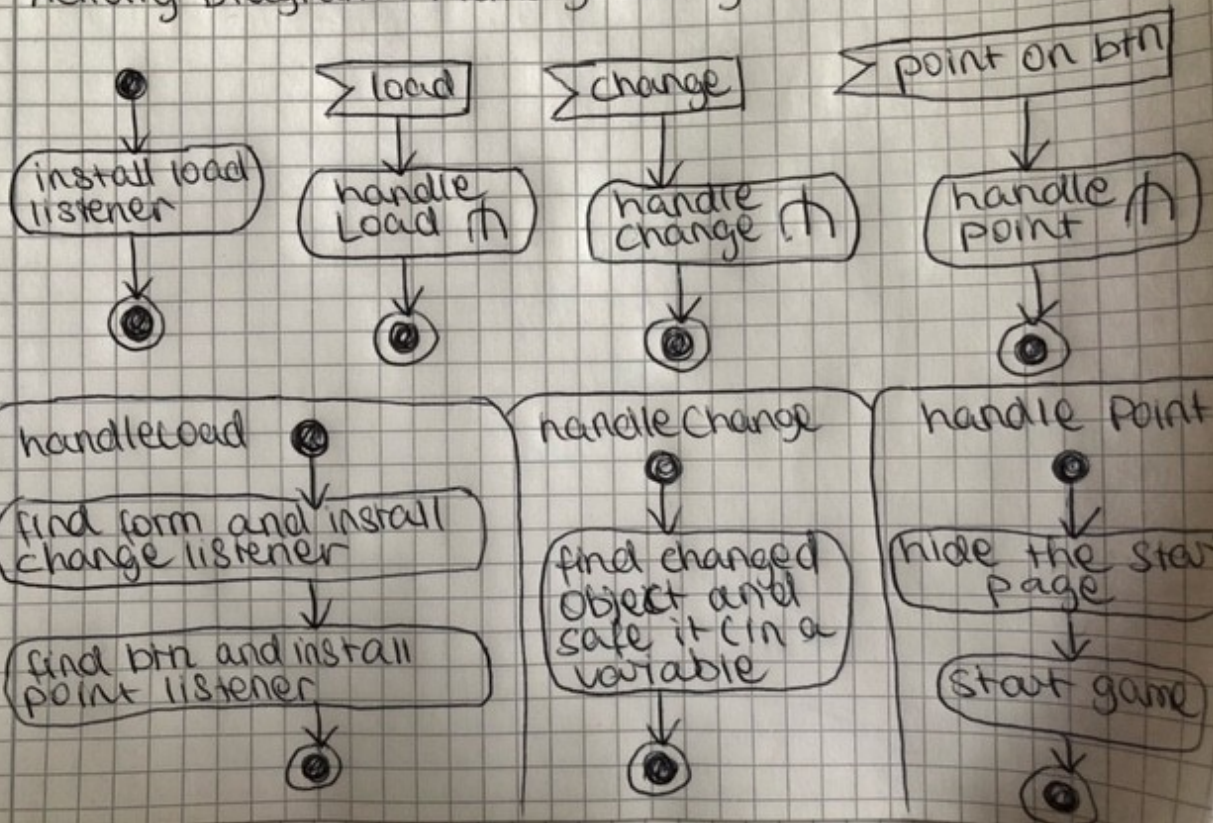 load
change
point on btn
install load
listener
handle
Load
handle
change
handle
point
handleLoad
find form and install
change listener
find btn and install
point listener
handleChange
find changed
object and
safe it (in a
variable
handle Point
hide the star
page
start game